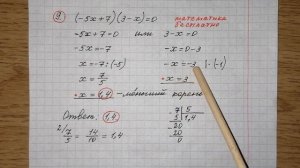 9. (-5x+7)(3-x)=0
математика
бесплатно
-5x+7=0 или 3-x=0
-5x=-7 -x=0-3
x=-7:(-5) -x=-3 |:(-1)
x=7/5 x=3
x=1,4 - меньший корень
Ответ: 1,4
2/ 7/5 = 14/10 = 1,4
7 | 5
5 | 1,4
20
20
0